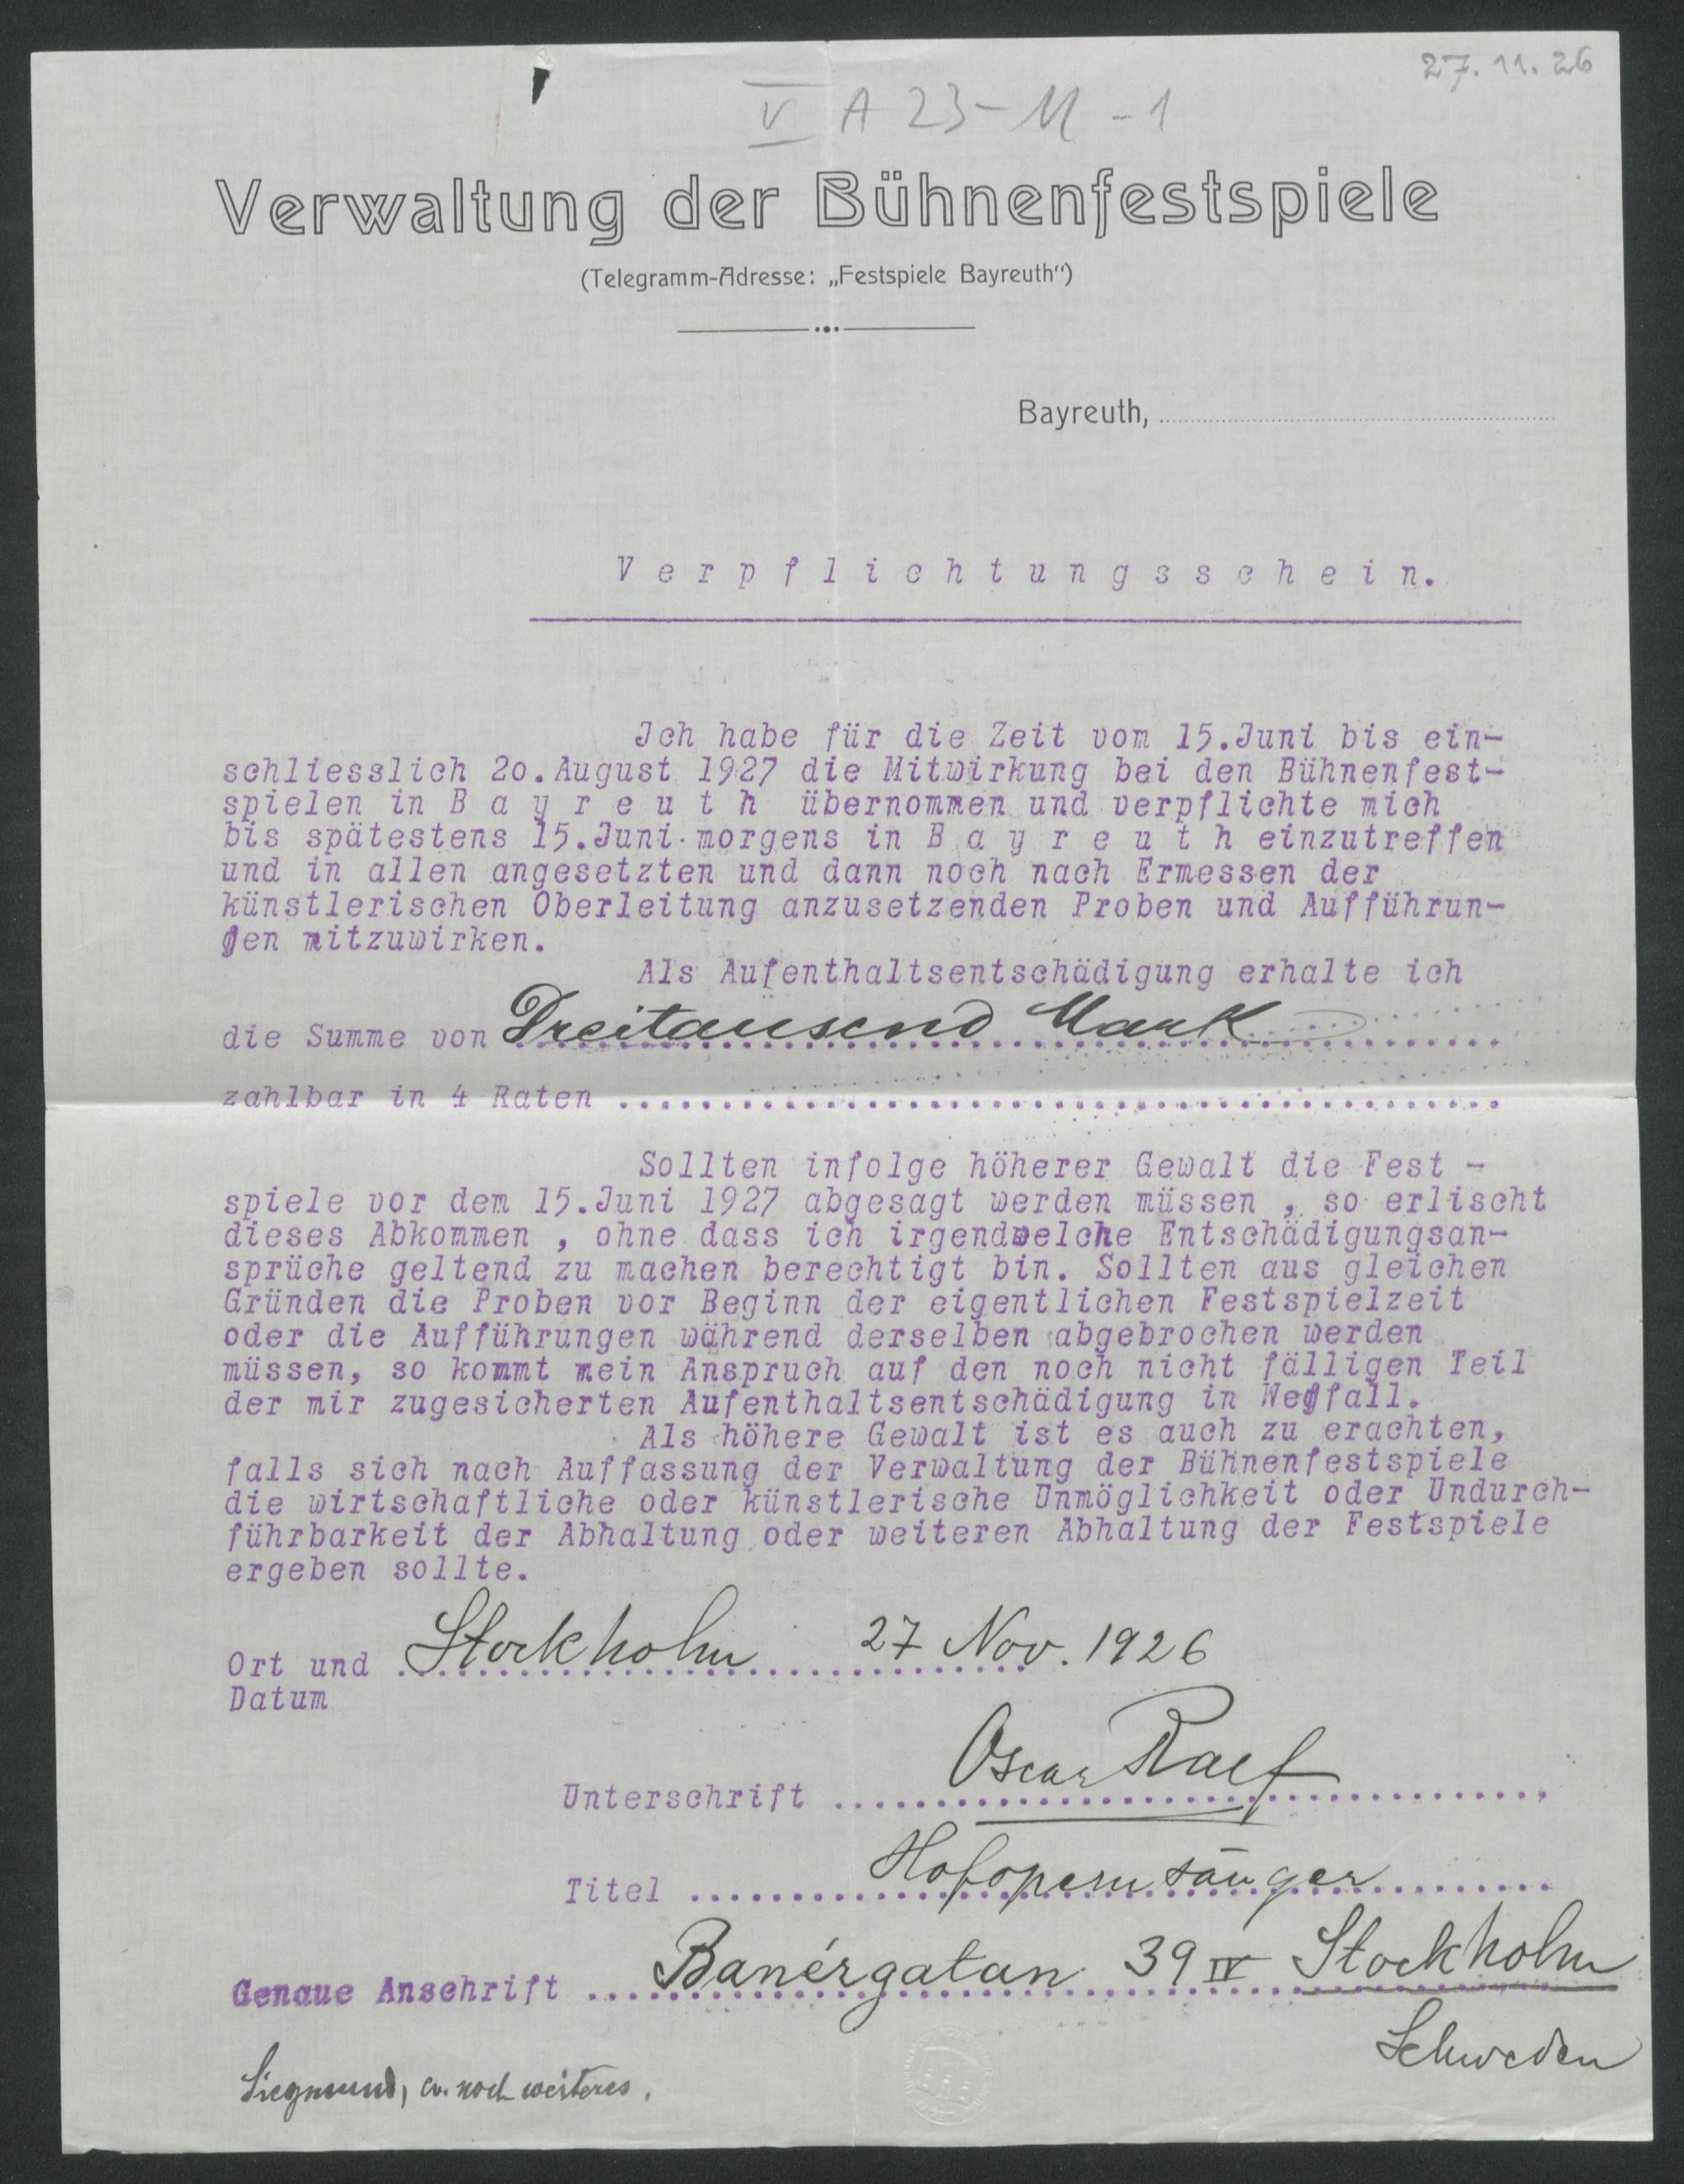 27.11.26
V A 23-11-1
Verwaltung der Bühnenfestspiele
(Telegramm-Adresse: „Festspiele Bayreuth“)
Bayreuth,
Verpflichtungsschein.
Ich habe für die Zeit vom 15.Juni bis ein-
schliesslich 2o.August 1927 die Mitwirkung bei den Bühnenfest-
spielen in B a y r e u t h übernommen und verpflichte mich
bis spätestens 15.Juni morgens in B a y r e u t h einzutreffen
und in allen angesetzten und dann noch nach Ermessen der
künstlerischen Oberleitung anzusetzenden Proben und Aufführun-
gen mitzuwirken.
Als Aufenthaltsentschädigung erhalte ich
die Summe von Dreitausend Mark
zahlbar in 4 Raten
Sollten infolge höherer Gewalt die Fest -
spiele vor dem 15.Juni 1927 abgesagt werden müssen , so erlischt
dieses Abkommen , ohne dass ich irgendwelche Entschädigungsan-
sprüche geltend zu machen berechtigt bin. Sollten aus gleichen
Gründen die Proben vor Beginn der eigentlichen Festspielzeit
oder die Aufführungen während derselben abgebrochen werden
müssen, so kommt mein Anspruch auf den noch nicht fälligen Teil
der mir zugesicherten Aufenthaltsentschädigung in Wegfall.
Als höhere Gewalt ist es auch zu erachten,
falls sich nach Auffassung der Verwaltung der Bühnenfestspiele
die wirtschaftliche oder künstlerische Unmöglichkeit oder Undurch-
führbarkeit der Abhaltung oder weiteren Abhaltung der Festspiele
ergeben sollte.
Ort und Stockholm 27 Nov. 1926
Datum
Unterschrift Oscar Ralf
Titel Hofopernsänger
Genaue Anschrift Banérgatan 39 IV Stockholm
Schweden
Siegmund, ev. noch weiteres.